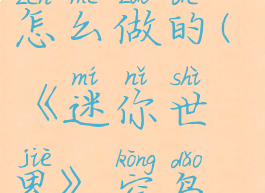 zěn me zuò de
怎么做的(
mí nǐ shì
《迷你世
jiè kōng dǎo
界》空岛